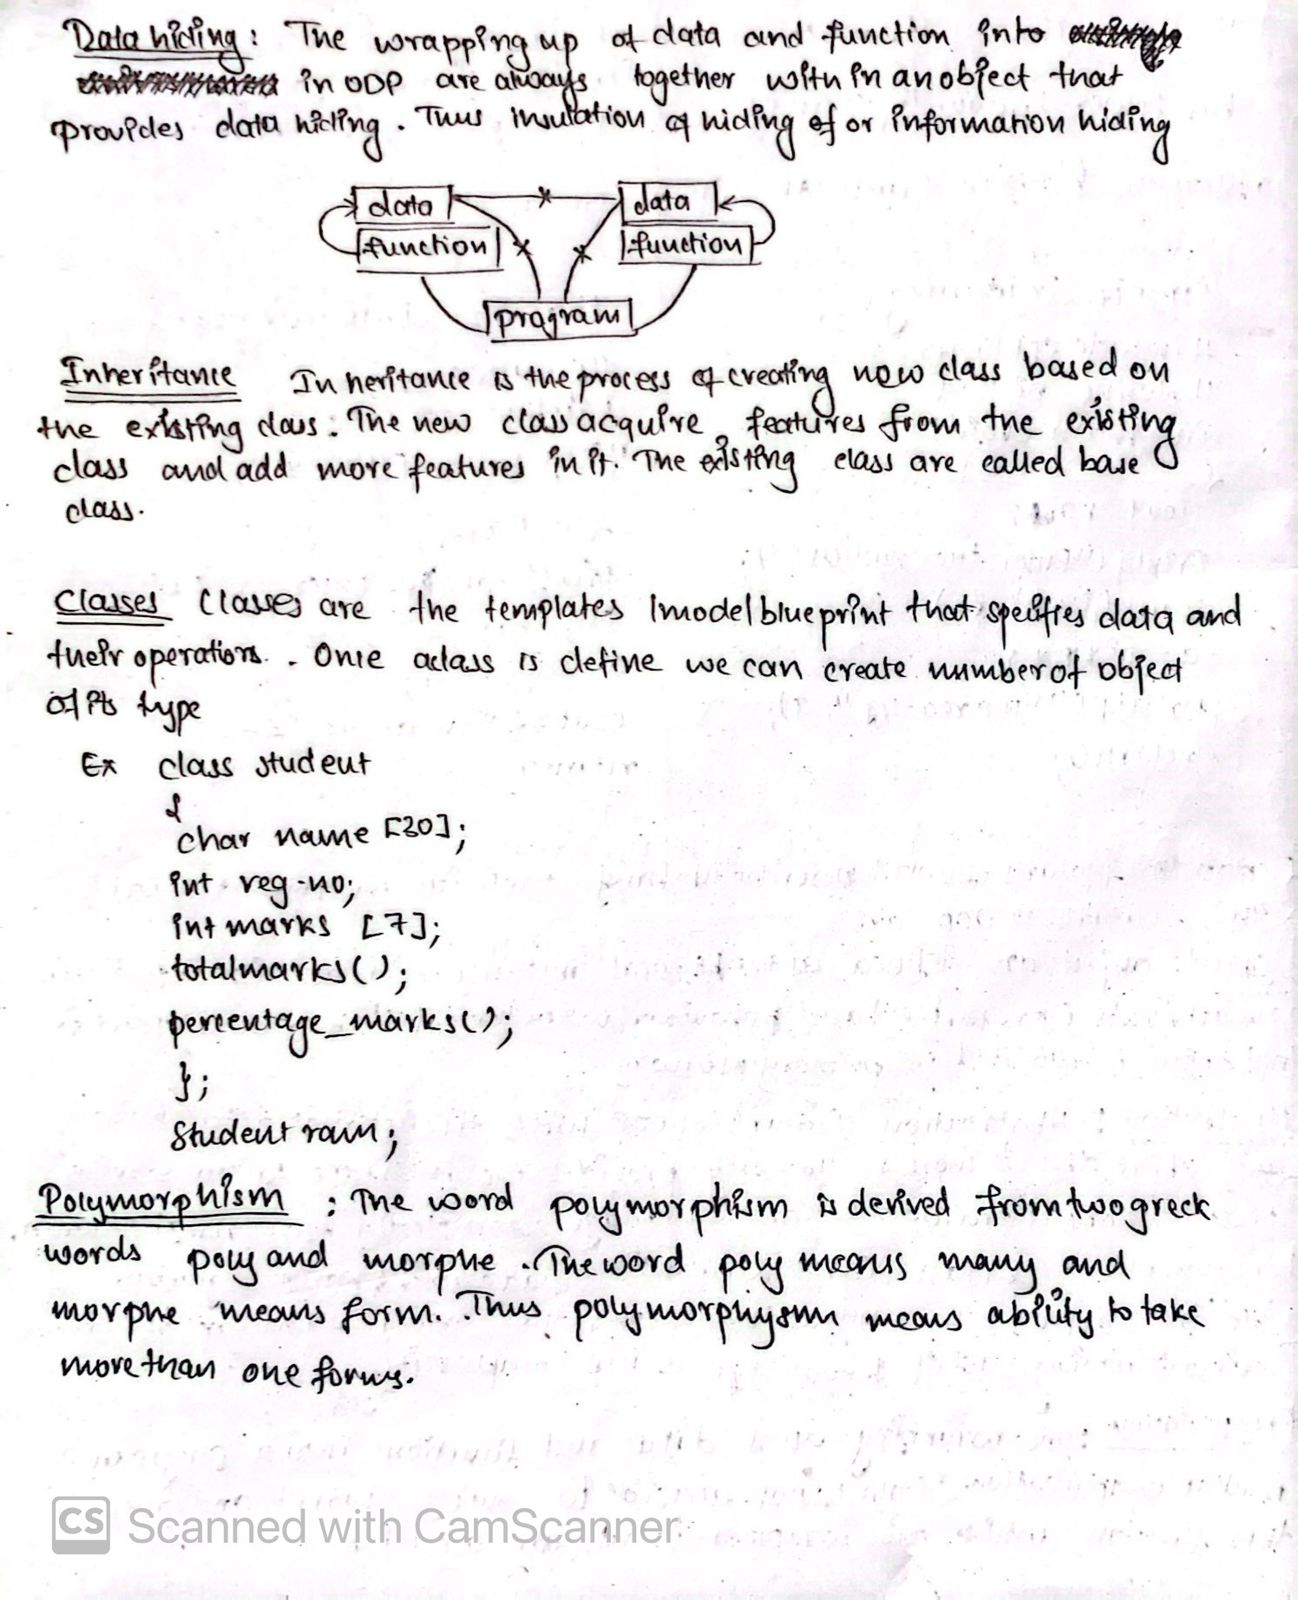 Data hiding : The wrapping up of data and function into
in OOP are always together with in an object that
provides data hiding. Thus insulation of hiding of or information hiding
data data
function function
program
Inheritance Inheritance is the process of creating new class based on
the existing class. The new class acquire features from the existing
class and add more features in it. The existing class are called base
class.
Classes Classes are the templates /model blueprint that specifies data and
their operations. Once a class is define we can create number of object
of its type
Ex class student
{
char name [30];
int reg-no;
int marks [7];
totalmarks();
percentage_marks();
};
Student ram;
Polymorphism : The word polymorphism is derived from two greek
words poly and morphe. The word poly means many and
morphe means form. Thus polymorphysm means ability to take
more than one forms.
CS Scanned with CamScanner